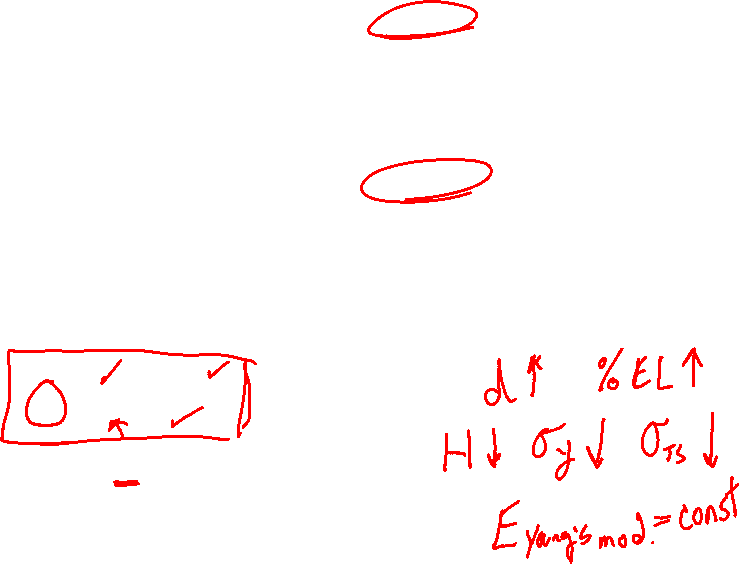 d ↑ % EL ↑
H ↓ σy ↓ σTS ↓
E yang's mod. = const